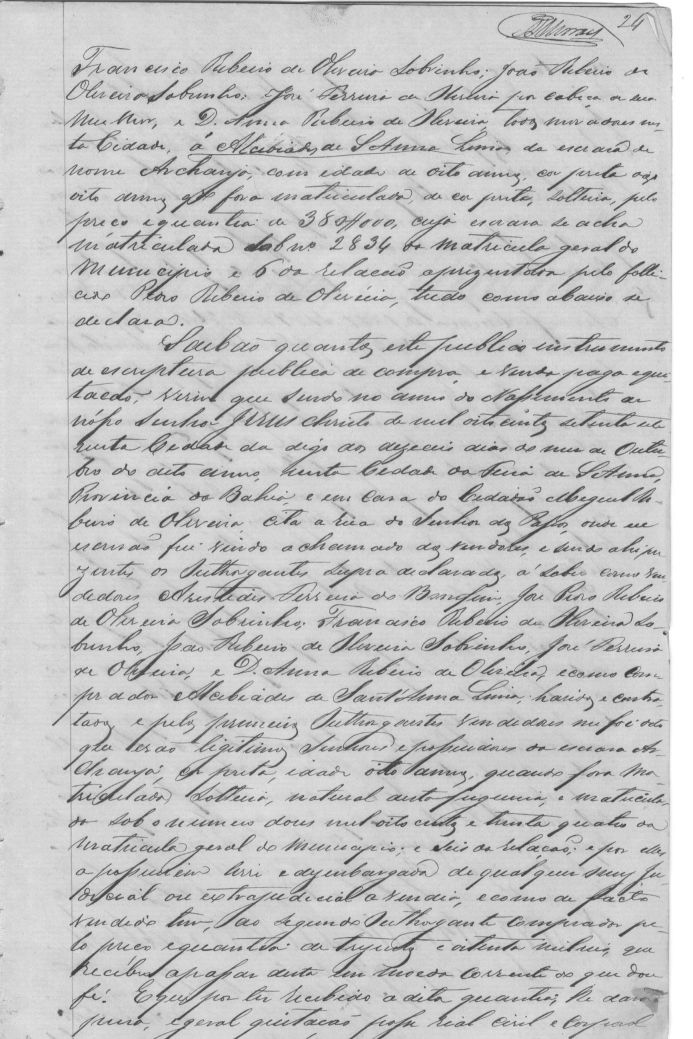 24
Francisco Ribeiro de Oliveira Sobrinho; João Ribeiro de
Oliveira Sobrinho; José Ferreira de Oliveira por cabeça de sua
Mulher, e D. Anna Ribeiro de Oliveira todos moradores nes
ta Cidade, á Alcibiades de S. Anna Lima da escrava de
nome Archanja, com idade de oito annos, cor preta
oito annos qdo fora matriculada, de cor preta, solteira, pelo
preço e quantia de 380$000, cuja escrava se acha
matriculada sob no 2834 da matricula geral do
Municipio e 6 da relação aprezentada pelo falle
cido Pedro Ribeiro de Oliveira, tudo como abaixo se
declara.
Saibão quantos este publico instrumento
de escriptura publica de compra, e venda paga e qui
tação, virem que sendo no anno do Nascimento de
Nosso Senhor Jesus Christo de mil oito centos setenta e
nesta Cidade da digo aos dezeseis dias do mez de Outu
bro do dito anno, nesta Cidade da Feira de S. Anna,
Provincia da Bahia, e em casa do Cidadão Miguel Ri
beiro de Oliveira cita a rua do Senhor dos Passos, onde eu
escrivão fui vindo a chamado dos vendedores, e sendo ahi pre
zentes os Outhorgantes supra declarados, á saber como ven
dedores Aristides Ferreira, José Pedro Ribeiro
de Oliveira Sobrinho; Francisco Ribeiro de Oliveira So
brinho, João Ribeiro de Oliveira Sobrinho, José Ferreira
de Oliveira, e D. Anna Ribeiro de Oliveira, e como com
prador Alcibiades de Sant'Anna Lima; havidos e contra
tados e pelos primeiros Outhorgantes vendedores me foi dito
que erão legitimos Senhores e possuidores da escrava Ar
changa, cor preta, idade oito annos, quando fora ma
triculada solteira, natural desta freguezia, e matricula
da sob o numero dous mil oito centos e trinta quatro da
matricula geral do Municipio, e seis da relação; e por elles
a possuirem livre e dezembargada de qualquer onus ju
dicial ou extrajudicial a vendia, e como de facto
vendido tem, ao segundo Outhorgante comprador pe
lo preço e quantia de trezentos e oitenta mil reis, que
recebeu a passar desta em moeda corrente do que dou
fé. E que por ter recebido a dita quantia, lhe dava
pura, e geral quitação posse real civil e corporal